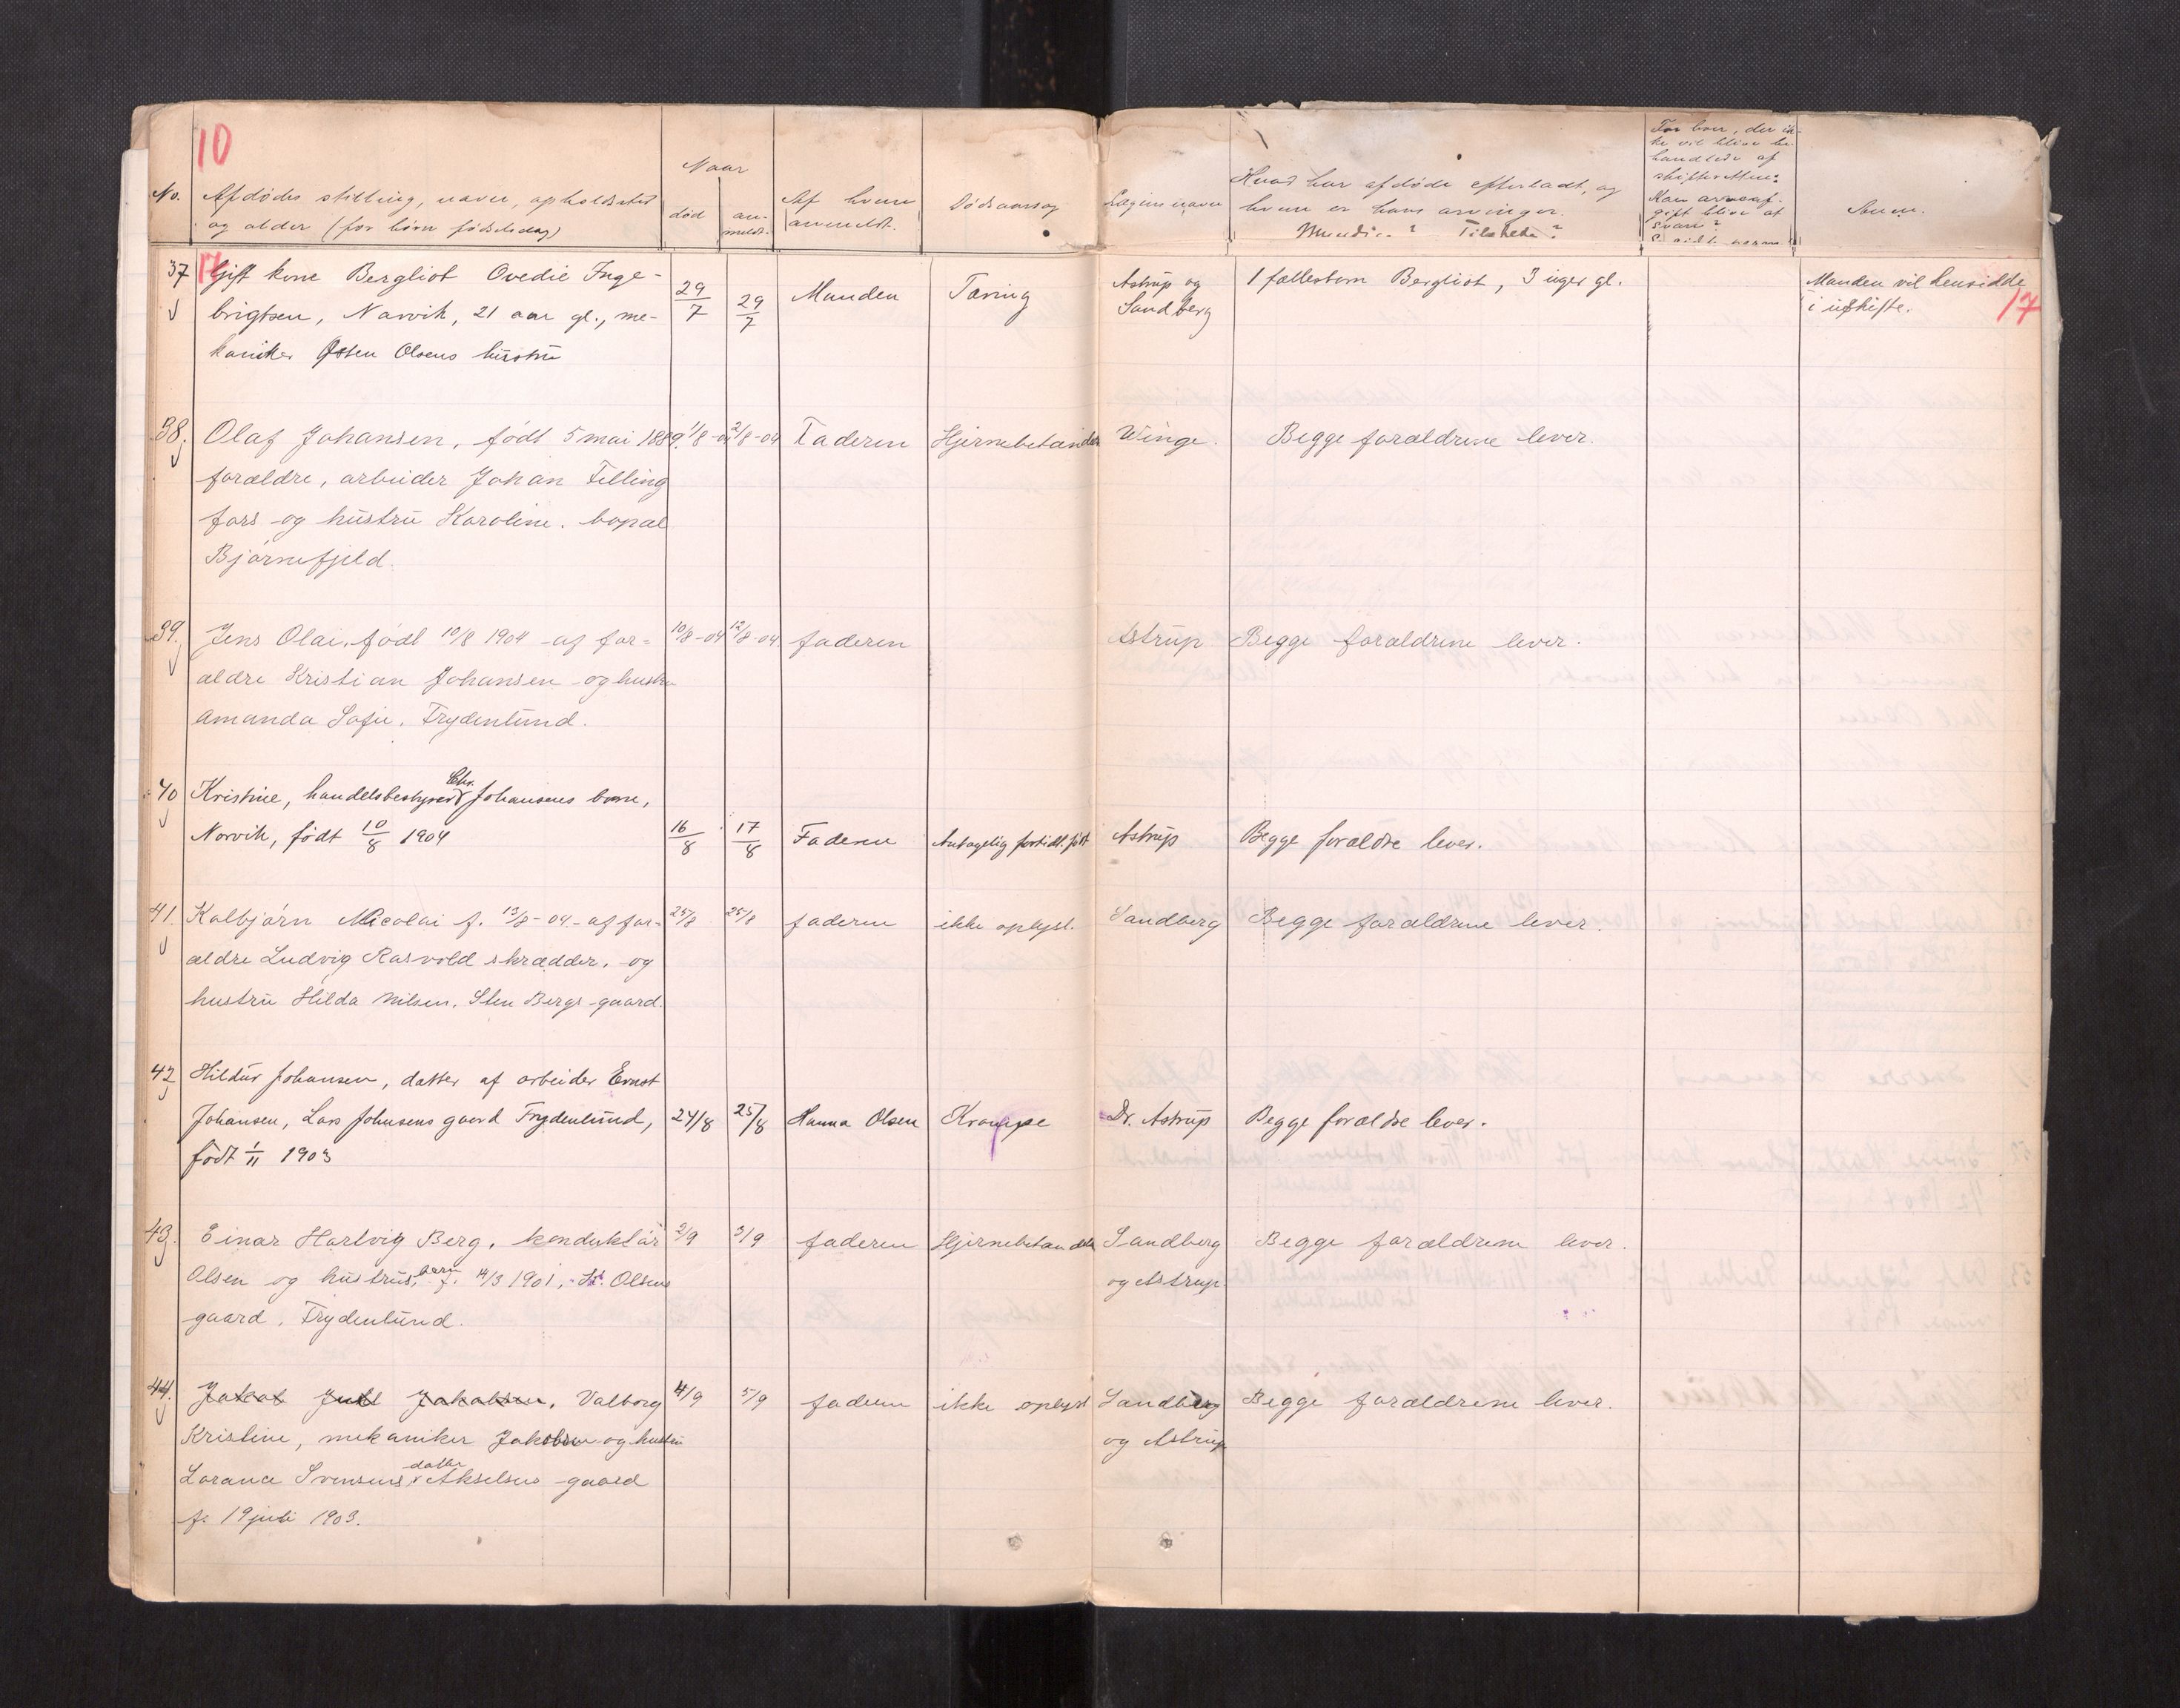 10
No.
Afdødes stilling, navn, opholdssted
og alder (for børn fødselsdag)
Naar
død
an-
meldt.
Af hvem
anmeldt.
Dødsaarsag
Lægens navn
Hvad har afdøde efterladt, og
hvem er hans arvinger.
Myndige? Tilstede?
For boer, der ik-
ke vil blive be-
handlede af
skifteretten:
Kan arveaf-
gift blive at
svare?
Anm.
37 17 Gift kone Bergliot Ovedie Inge-
brigtsen, Narvik, 21 aar gl., me-
kaniker Østen Olsens hustru
29/7 29/7 Manden Tæring
Astrup og
Sandberg
1 fællesbarn Bergliot, 3 uger gl.
Manden vil hensidde
i uskifte.
17
38. Olaf Johansen, født 5 mai 1889. 1/8-04 2/8-04 Faderen Hjernebetændelse Winge. Begge forældrene lever.
forældre, arbeider Johan Felling
fors og hustru Karoline. bopæl
Bjørnefjeld.
39. Jens Olai, født 10/8 1904 af for= 10/8-04 12/8-04. faderen Astrup Begge forældrene lever.
ældre Kristian Johansen og hustru
Amanda Sofie. Frydenlund.
40 Kristine, handelsbestyrer Chr. Johansens barn,
Narvik, født 10/8 1904 16/8 17/8 Faderen Antagelig fortidl. født Astrup Begge forældre lever.
41. Kolbjørn Nicolai f. 13/8-04. af for- 25/8 25/8 faderen ikke oplyst. Sandberg Begge forældrene lever.
ældre Ludvig Rasvold skrædder. og
hustru Hilda Nilsen. Sten Bergs gaard.
42 Hildur Johansen, datter af arbeider Ernst
Johansen, Lars Johnsens gaard Frydenlund, 24/8 25/8 Hanna Olsen Krampe Dr. Astrup Begge forældre lever.
født 1/11 1903
43. Einar Hartvig Berg, konduktør 2/9 3/9 faderen Hjernebetændelse Sandberg Begge forældrene lever.
Olsen og hustrus barn f. 14/3 1901, Olsens
og Astrup.
gaard. Frydenlund.
44. Jakob Juel Jakobsen, Valborg 4/9 5/9 faderen ikke oplyst Sandberg Begge forældrene lever.
Kristine, mekaniker Jakobsen og hustru
og Astrup
Lorança Svensens datter Akselsens gaard
f. 19 juli 1903.